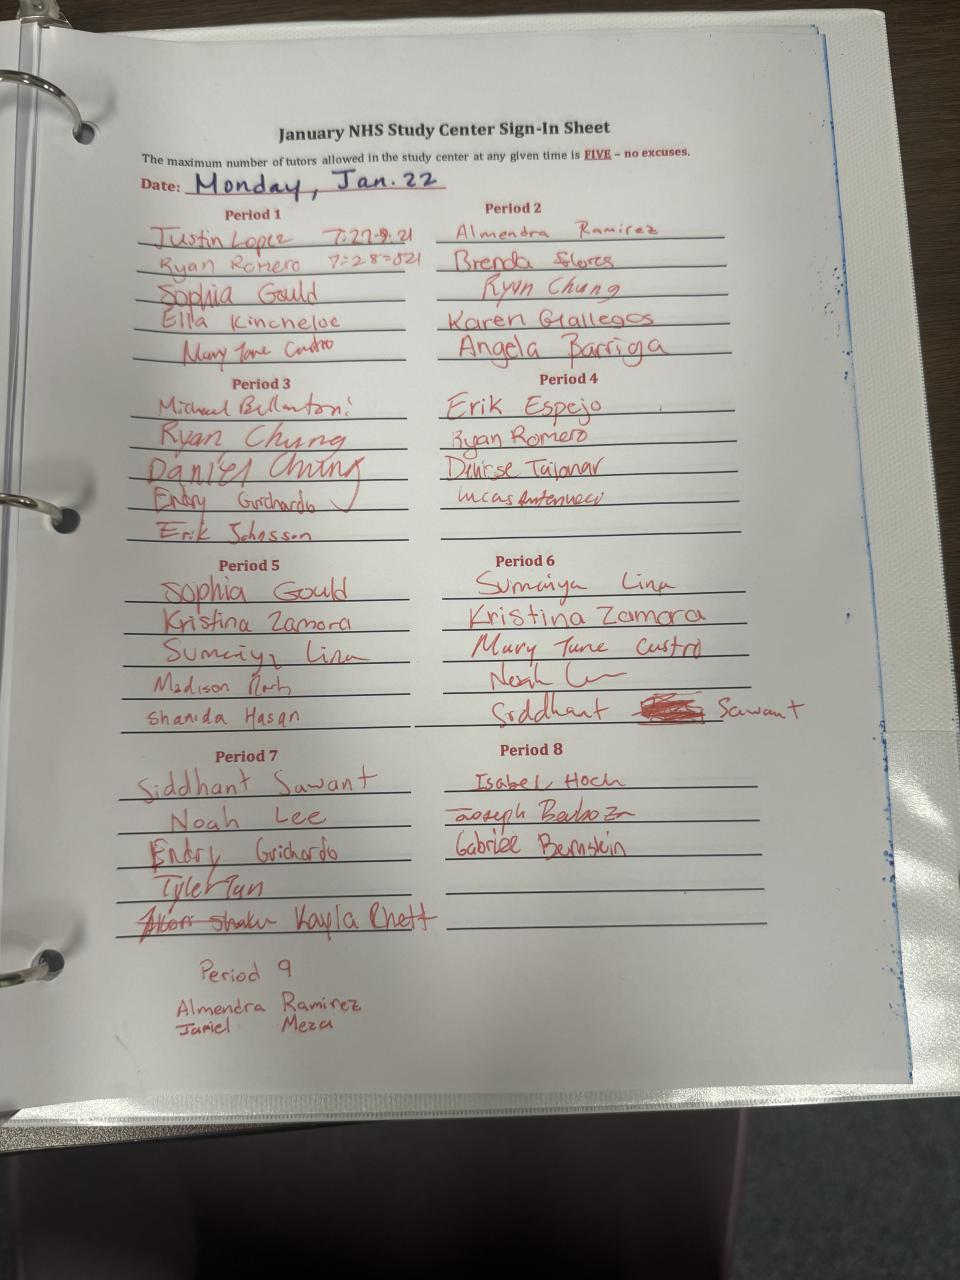 January NHS Study Center Sign-In Sheet
The maximum number of tutors allowed in the study center at any given time is FIVE – no excuses.
Date: Monday, Jan. 22
Period 1
Justin Lopez 7:27-8:21
Ryan Romero 7:28-821
Sophia Gould
Ella Kincheloe
Mary Jane Castro
Period 2
Almendra Ramirez
Brenda Flores
Ryan Chung
Karen Gallegos
Angela Barriga
Period 3
Michael Bellantoni
Ryan Chung
Daniel Chung
Endry Guichardo
Erik Johnsson
Period 4
Erik Espejo
Ryan Romero
Denisse Tajonar
Lucas Antenucci
Period 5
Sophia Gould
Kristina Zamora
Sumaiya Lina
Madison
Shanida Hasan
Period 6
Sumaiya Lina
Kristina Zamora
Mary Jane Castro
Noah
Siddhant Sawant
Period 7
Siddhant Sawant
Noah Lee
Endry Guichardo
Tyler Tan
Kayla Rhett
Period 8
Isabel Hoch
Joseph
Gabriel Bernstein
Period 9
Almendra Ramirez
Jamiel Meza